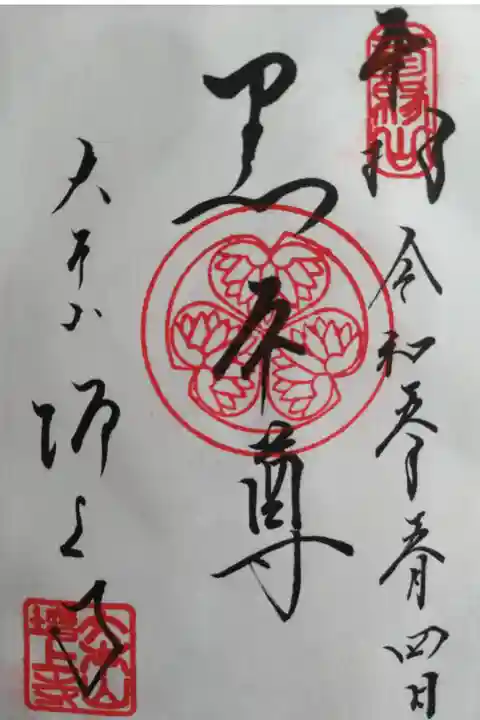 奉拝
三縁山
令和四日
黒本尊
大本山
増上寺
大本山
増上寺